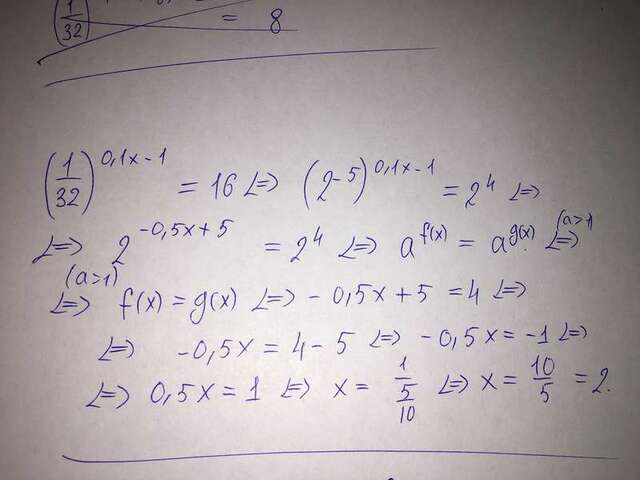 (1/32) = 8
(1/32)^(0,1x-1) = 16 <=> (2^(-5))^(0,1x-1) = 2^4 <=>
<=> 2^(-0,5x+5) = 2^4 <=> a^(f(x)) = a^(g(x)) (a>1) <=>
(a>1) <=> f(x) = g(x) <=> -0,5x+5 = 4 <=>
<=> -0,5x = 4-5 <=> -0,5x = -1 <=>
<=> 0,5x = 1 <=> x = 1/(5/10) <=> x = 10/5 = 2.